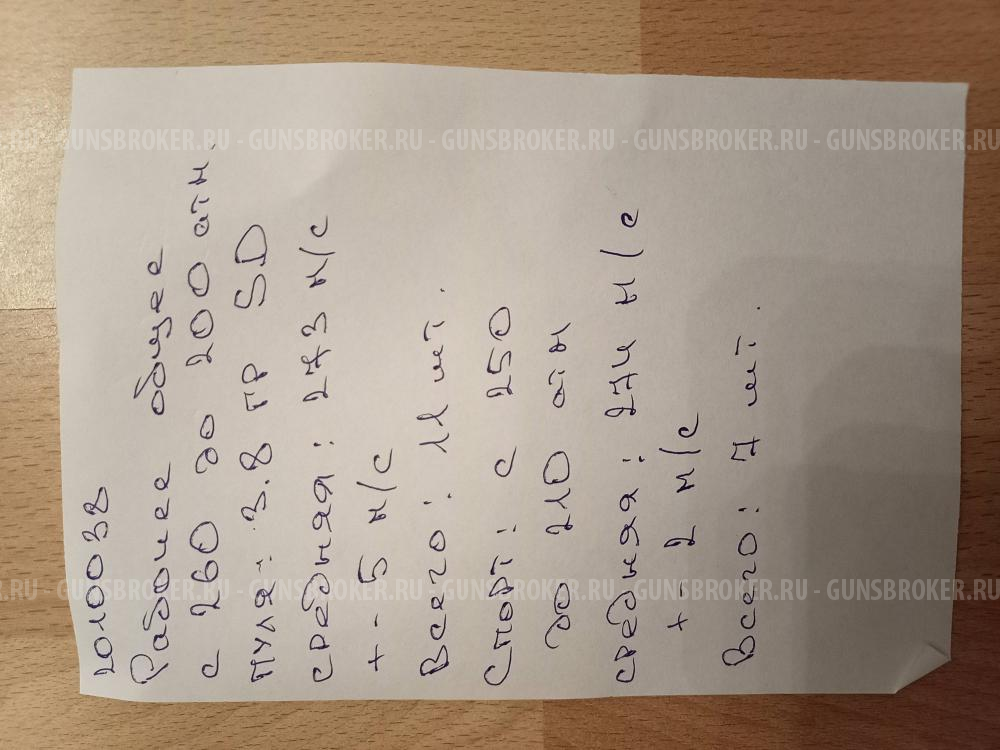 2010038
Рабочее общее
с 260 до 200 атм.
пуля: 3.8 гр SD
средняя: 273 м/с
+- 5 м/с
Всего: 11 шт.
Спорт: с 250
до 210 атм
средняя: 274 м/с
+- 2 м/с
Всего: 7 шт.
.RU - GUNSBROKER.RU - GUNSBROKER.RU - GUNSBROKER.RU - GUNSBROKER.RU - GUNSBROKER.RU
.RU - GUNSBROKER.RU - GUNSBROKER.RU - GUNSBROKER.RU - GUNSBROKER.RU - GUNSBROKER.RU